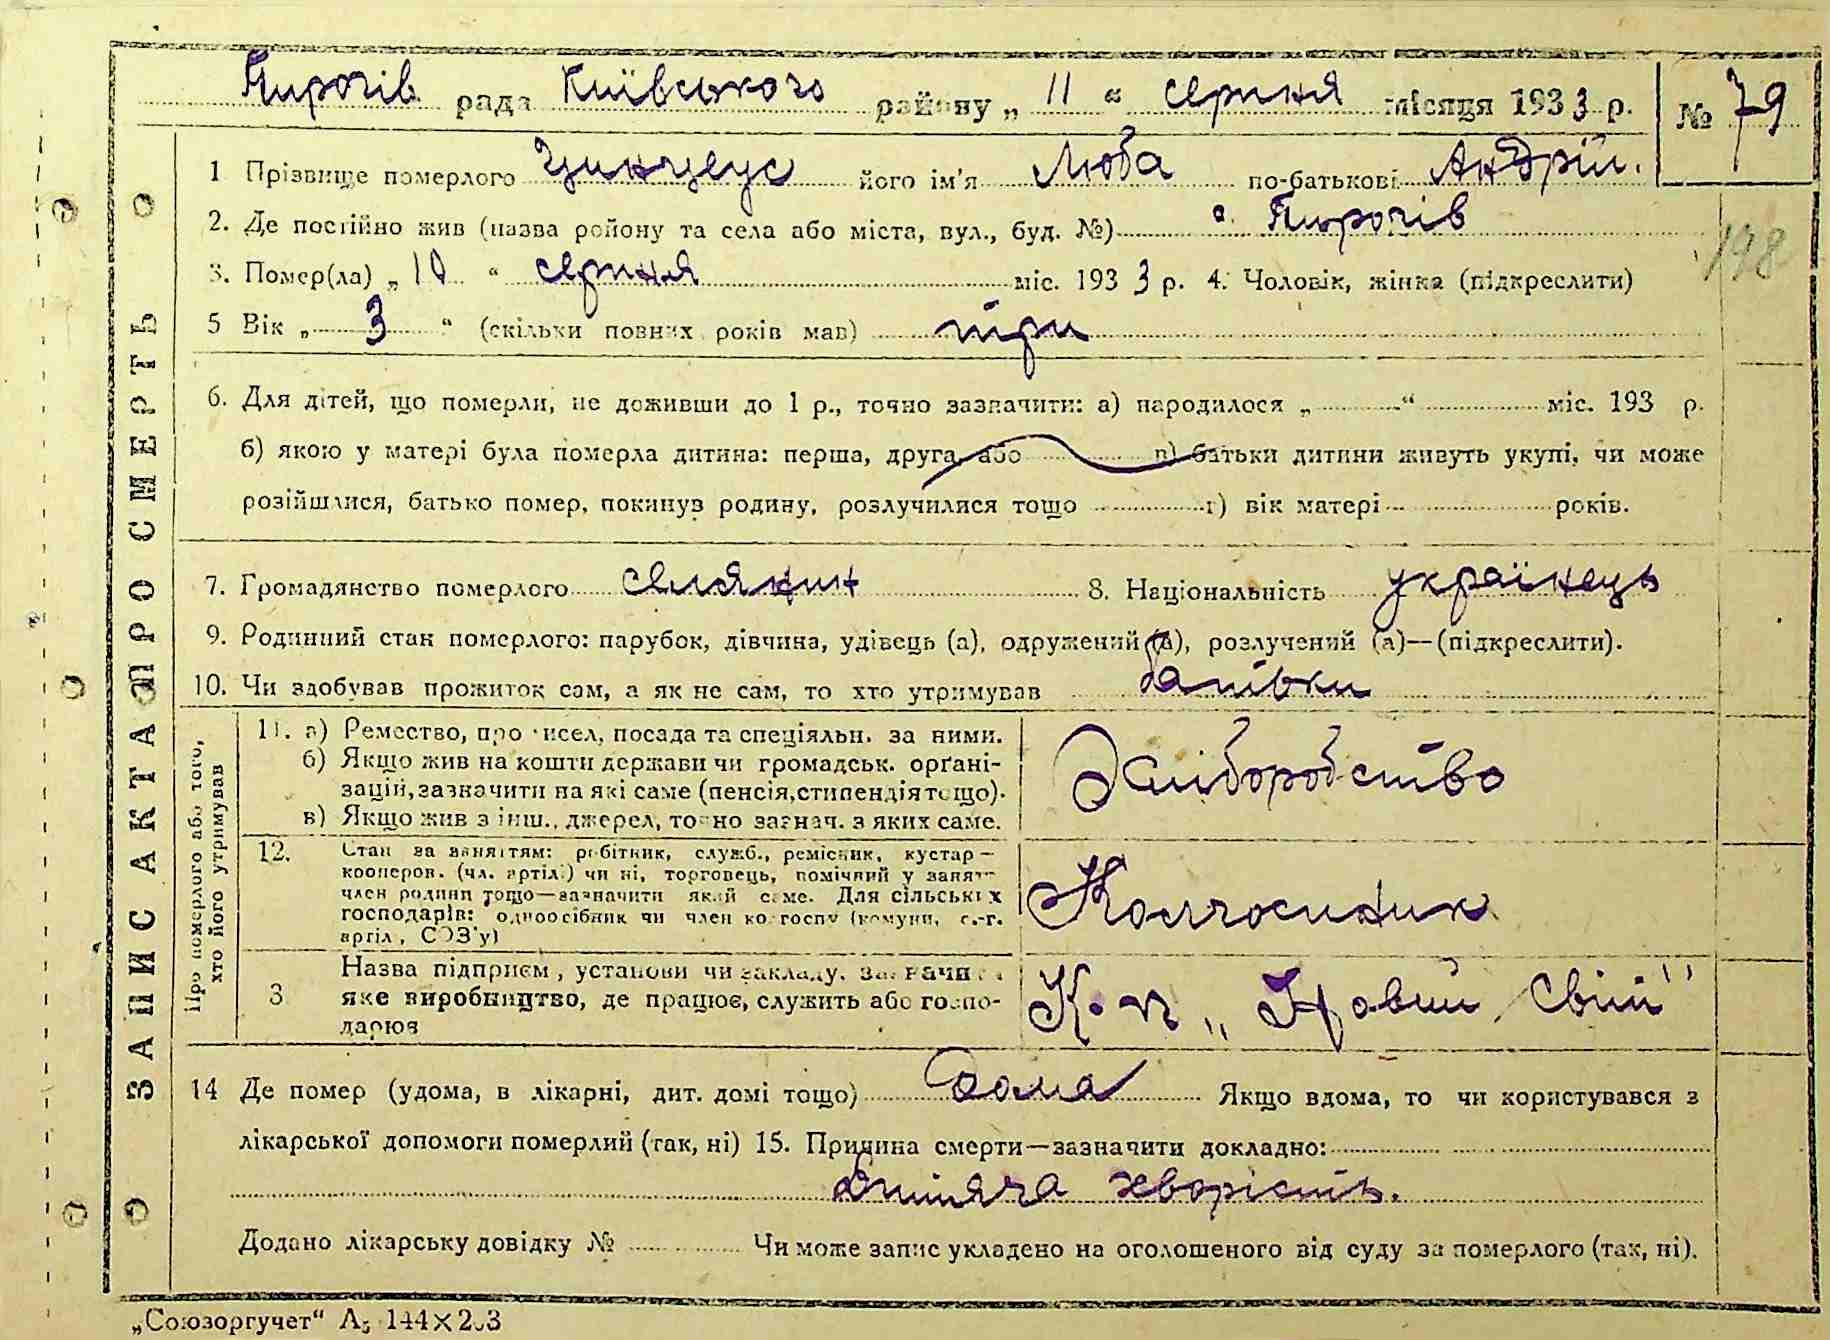 Пирогів рада Київського району „ 11 “ серпня місяця 193 3 р. № 79
1 Прізвище померлого його ім'я Люба по-батькові Андрій.
2. Де постійно жив (назва району та села або міста, вул., буд. №) с. Пирогів
198
3. Помер(ла) „ 10 “ серпня міс. 193 3 р. 4. Чоловік, жінка (підкреслити)
5 Вік „ 3 “ (скільки повних років мав) три
6. Для дітей, що померли, не доживши до 1 р., точно зазначити: а) народилося „ “ міс. 193 р.
б) якою у матері була померла дитина: перша, друга, або в) батьки дитини живуть укупі, чи може
розійшлися, батько помер, покинув родину, розлучилися тощо г) вік матері років.
7. Громадянство померлого селянин 8. Національність українець
9. Родинний стан померлого: парубок, дівчина, удівець (а), одружений (а), розлучений (а)—(підкреслити).
10. Чи здобував прожиток сам, а як не сам, то хто утримував батьки
ЗАПИС АКТА ПРО СМЕРТЬ
Про померлого або того,
хто його утримував
11. а) Ремество, промисел, посада та спеціяльн. за ними.
б) Якщо жив на кошти держави чи громадськ. орґані-
зацій, зазначити на які саме (пенсія, стипендія тощо).
в) Якщо жив з інш., джерел, точно зазнач. з яких саме.
Хліборобство
12. Стан за заняттям: робітник, служб., ремісник, кустар—
кооперов. (чл. артілі) чи ні, торговець, помічний у занят.
член родини тощо—зазначити який саме. Для сільських
господарів: одноосібник чи член колгоспу (комуни, с.-г.
артіл, СОЗ'у)
Колгоспник
Назва підприєм, установи чи закладу, зазначити
3 яке виробництво, де працює, служить або госпо-
дарює
К. п „Новий Світ"
14 Де помер (удома, в лікарні, дит. домі тощо) Дома Якщо вдома, то чи користувався з
лікарської допомоги померлий (так, ні) 15. Причина смерти—зазначити докладно:
Дитяча хворість.
Додано лікарську довідку № Чи може запис укладено на оголошеного від суду за померлого (так, ні).
„Союзоргучет“ А5 144×203